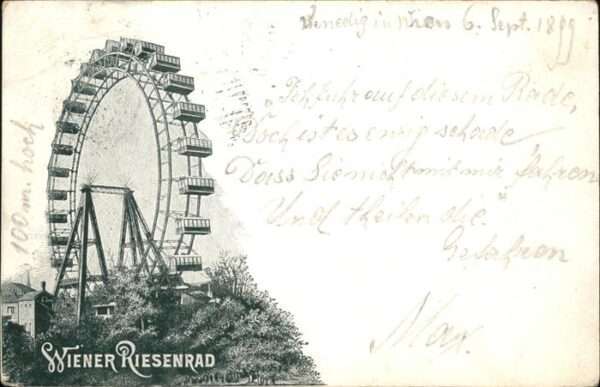 Venedig in Wien 6. Sept. 1899
„Ich fuhr auf diesem Rade,
Doch ist es ewig schade
Dass Sie nicht mit mir fahren
Und theilen die"
Gefahren
Max.
100 m. hoch
WIENER RIESENRAD